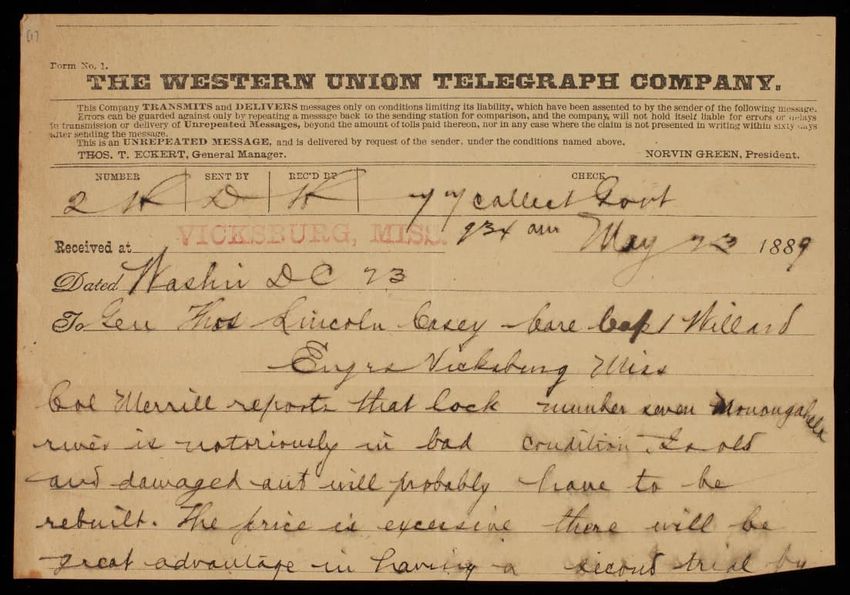 (1)
Form No. 1.
THE WESTERN UNION TELEGRAPH COMPANY.
This Company TRANSMITS and DELIVERS messages only on conditions limiting its liability, which have been assented to by the sender of the following message.
Errors can be guarded against only by repeating a message back to the sending station for comparison, and the company, will not hold itself liable for errors or delays
in transmission or delivery of Unrepeated Messages, beyond the amount of tolls paid thereon, nor in any case where the claim is not presented in writing within sixty days
after sending the message.
This is an UNREPEATED MESSAGE, and is delivered by request of the sender, under the conditions named above.
THOS. T. ECKERT, General Manager. NORVIN GREEN, President.
NUMBER SENT BY REC'D BY CHECK
2 D collect Govt
Received at VICKSBURG, MISS. 934 am May 23 1889
Dated Washn DC 23
To Gen Thos Lincoln Casey Care Capt Willard
Engrs Vicksburg Miss
Col Merrill reports that lock number seven Monongahela
river is notoriously in bad condition. Is old
and damaged and will probably have to be
rebuilt. The price is excessive there will be
great advantage in having a second trial by